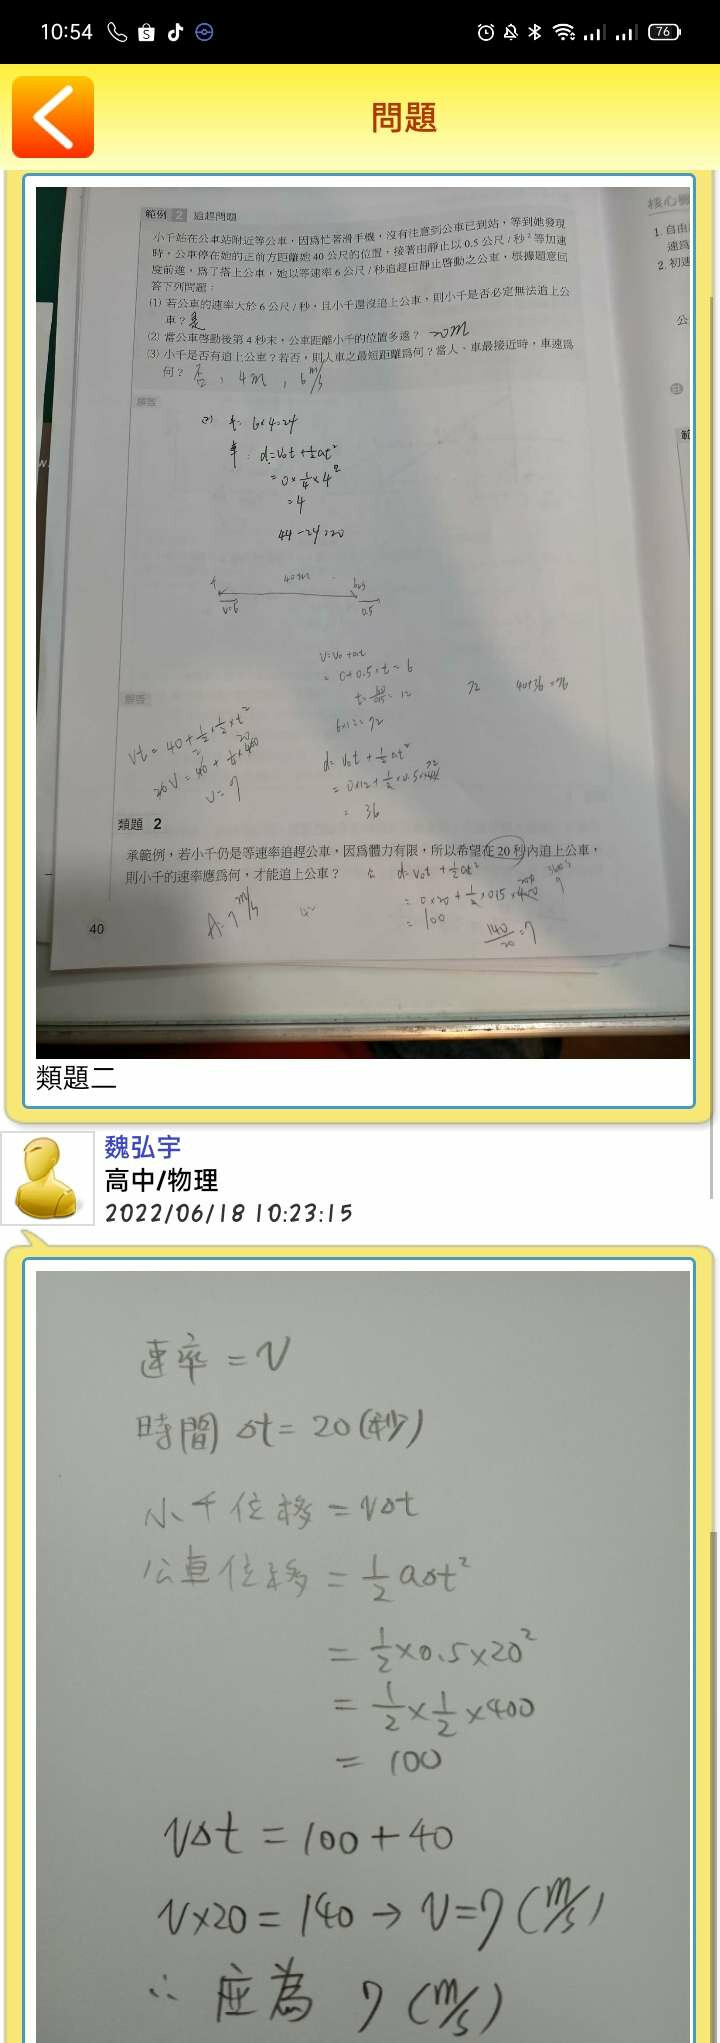 10:54
76
問題
範例 2 追趕問題
小千站在公車站附近等公車，因為忙著滑手機，沒有注意到公車已到站，等到她發現
時，公車停在她的正前方距離她 40 公尺的位置，接著由靜止以 0.5 公尺/秒² 等加速
度前進，為了搭上公車，她以等速率 6 公尺/秒追趕由靜止啟動之公車，根據題意回
答下列問題：
(1) 若公車的速率大於 6 公尺/秒，且小千還沒追上公車，則小千是否必定無法追上公
車？是
(2) 當公車啟動後第 4 秒末，公車距離小千的位置多遠？ 20m
(3) 小千是否有追上公車？若否，則人車之最短距離為何？當人、車最接近時，車速為
何？ 否、4m，6 m/s
解答
(2) 千: 6×4=24
車: d=V₀t+½at²
=0×¼×4²
=4
44-24=20
千 40m bus
v=6 0.5
V=V₀+at
=0+0.5×t=6
12
6×12=72
72 40+36=76
解答
Vt=40+½×½×t²
20V=40+¼×400
V=7
d=V₀t+½at²
=0×12+½×0.5×144 72
=36
類題 2
承範例，若小千仍是等速率追趕公車，因為體力有限，所以希望在 20 秒內追上公車，
則小千的速率應為何，才能追上公車？
d=V₀t+½at²
=0×20+½×0.5×400 200
=100
A: 7 m/s
140/20=7
核心概
1. 自由
速為
2. 初速
公
註
範
40
類題二
魏弘宇
高中/物理
2022/06/18 10:23:15
速率=V
時間 Δt=20(秒)
小千位移=VΔt
公車位移=½aΔt²
=½×0.5×20²
=½×½×400
=100
VΔt=100+40
V×20=140→V=7(m/s)
∴ 應為 7(m/s)